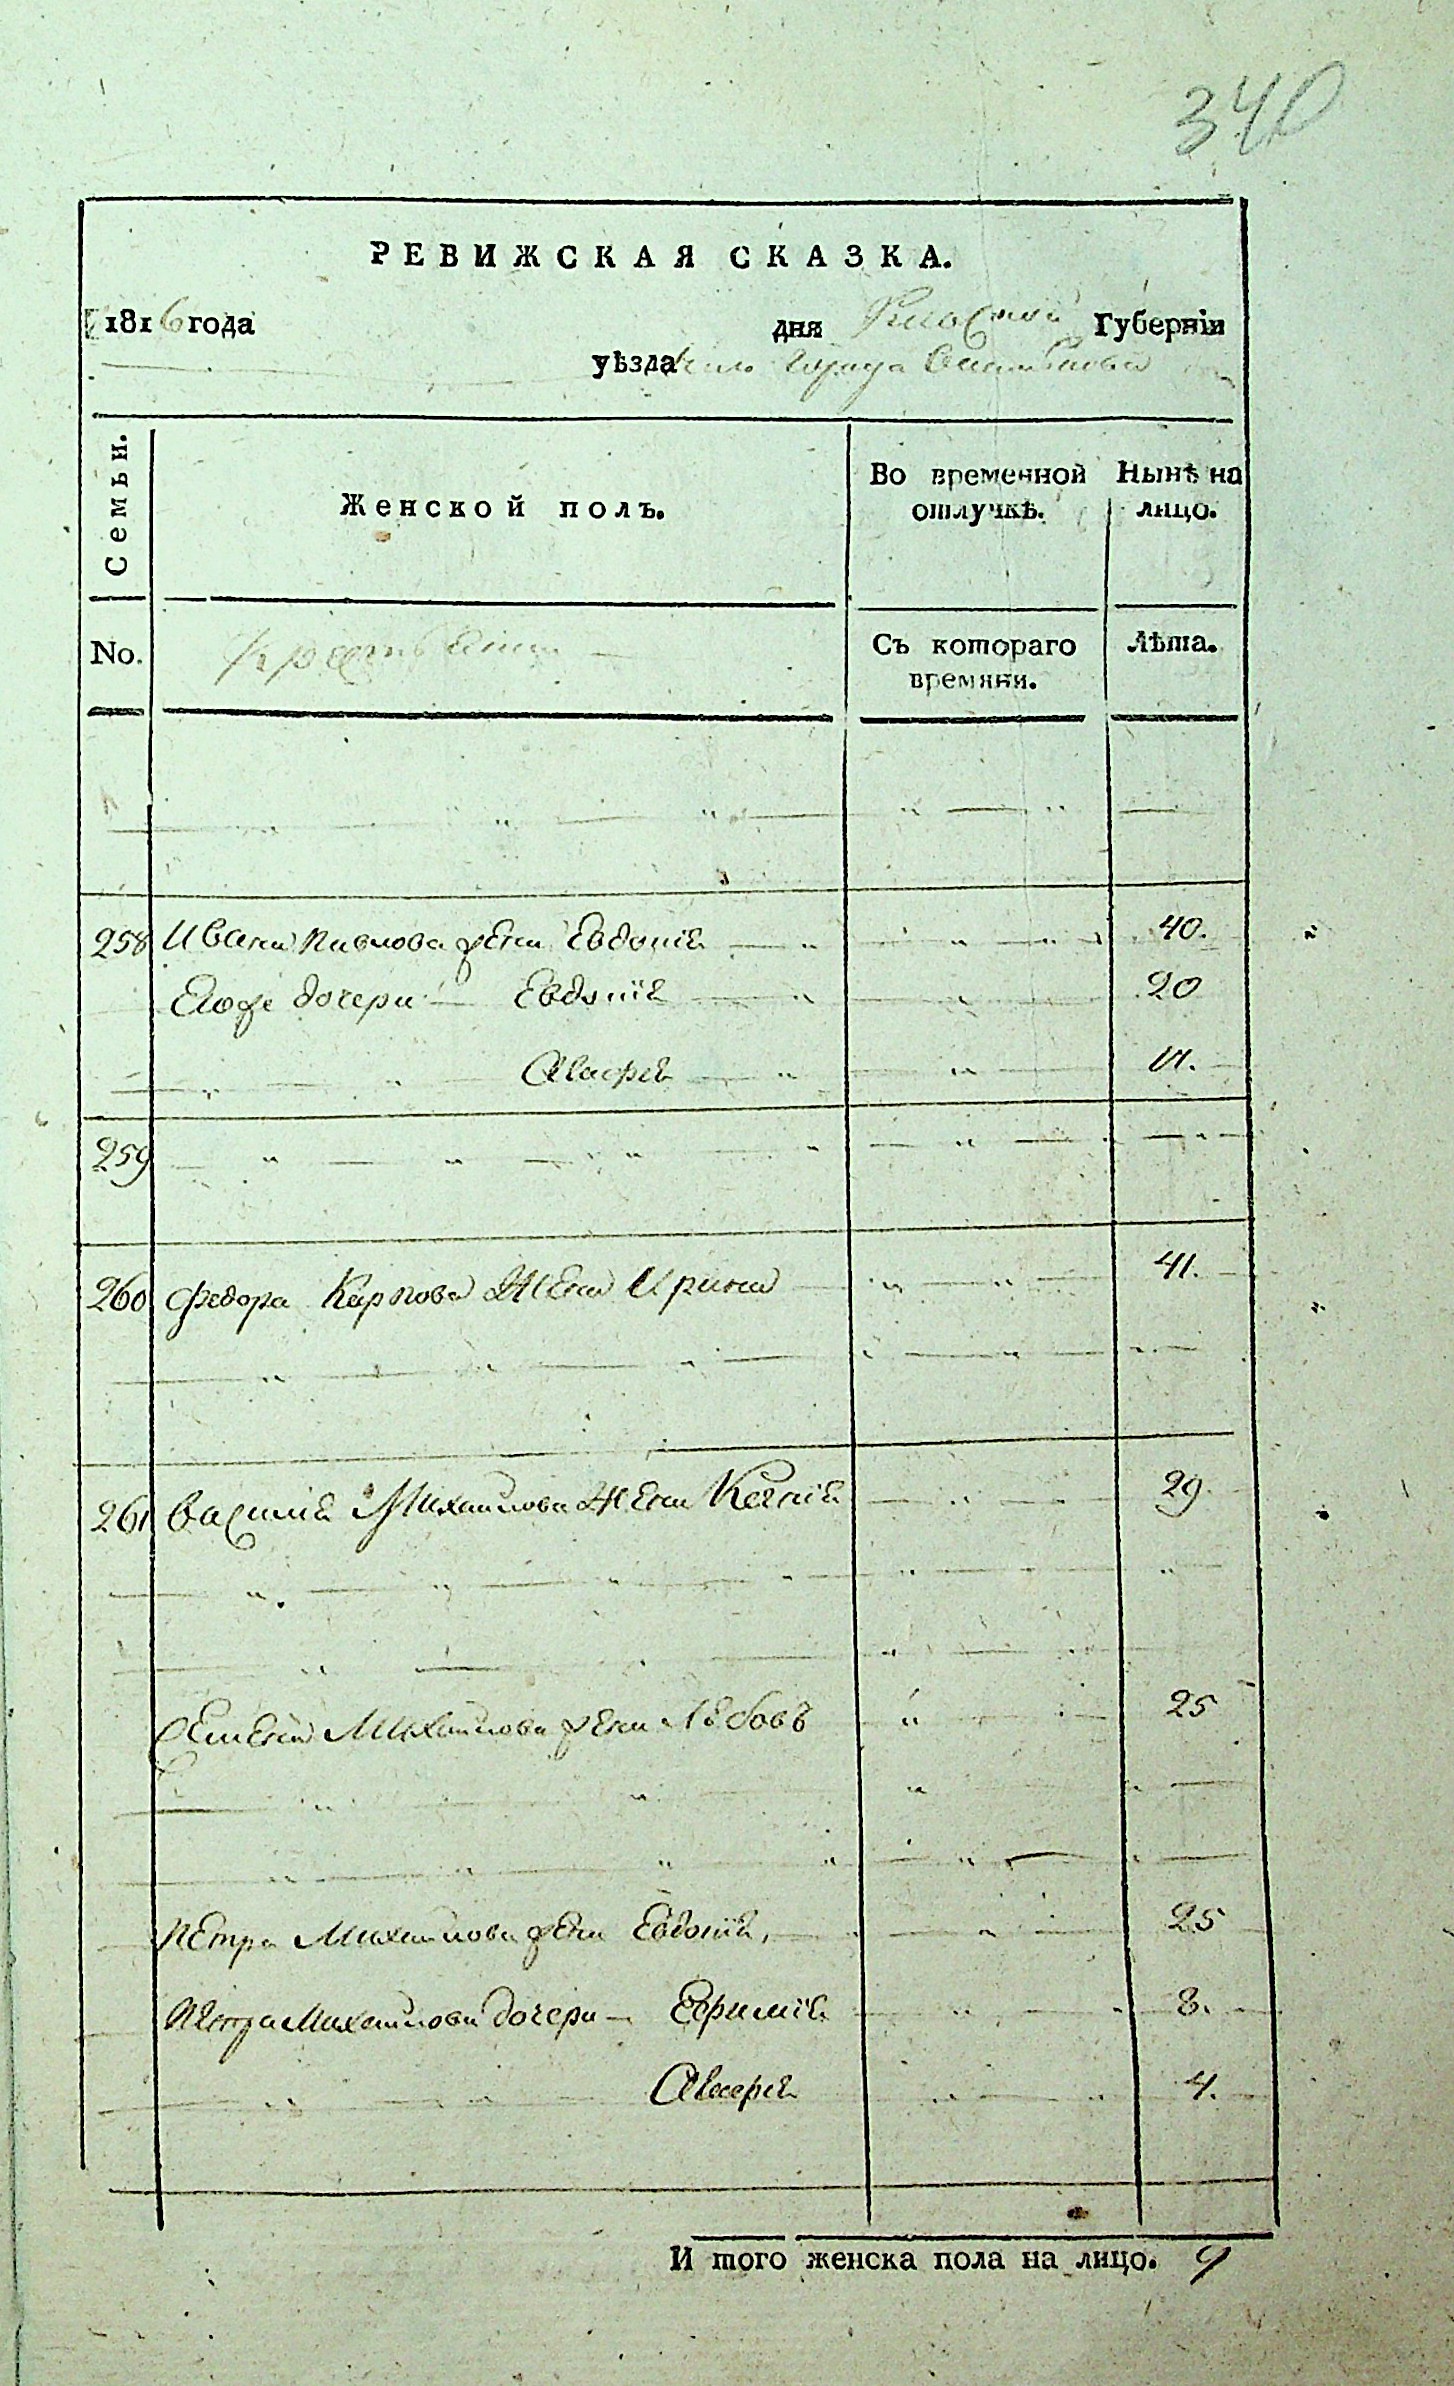 340
РЕВИЖСКАЯ СКАЗКА.
1816 года дня Губерніи
уѣзда города
Семьи. Женской полъ. Во временной отлучкѣ. Нынѣ на лицо.
No. Съ котораго времяни. Лѣта.
258 Ивана Павлова жена Евдокія 40.
Егоже дочери Евдокія 20
11.
259
260 Федора Карпова жена Ирина 41.
261 Василія Михайлова жена Ксенія 29
Семена Михайлова жена Любовъ 25
Петра Михайлова жена Евдокія, 25
Петра Михайлова дочери Ефимія 8.
4.
И того женска пола на лицо. 9